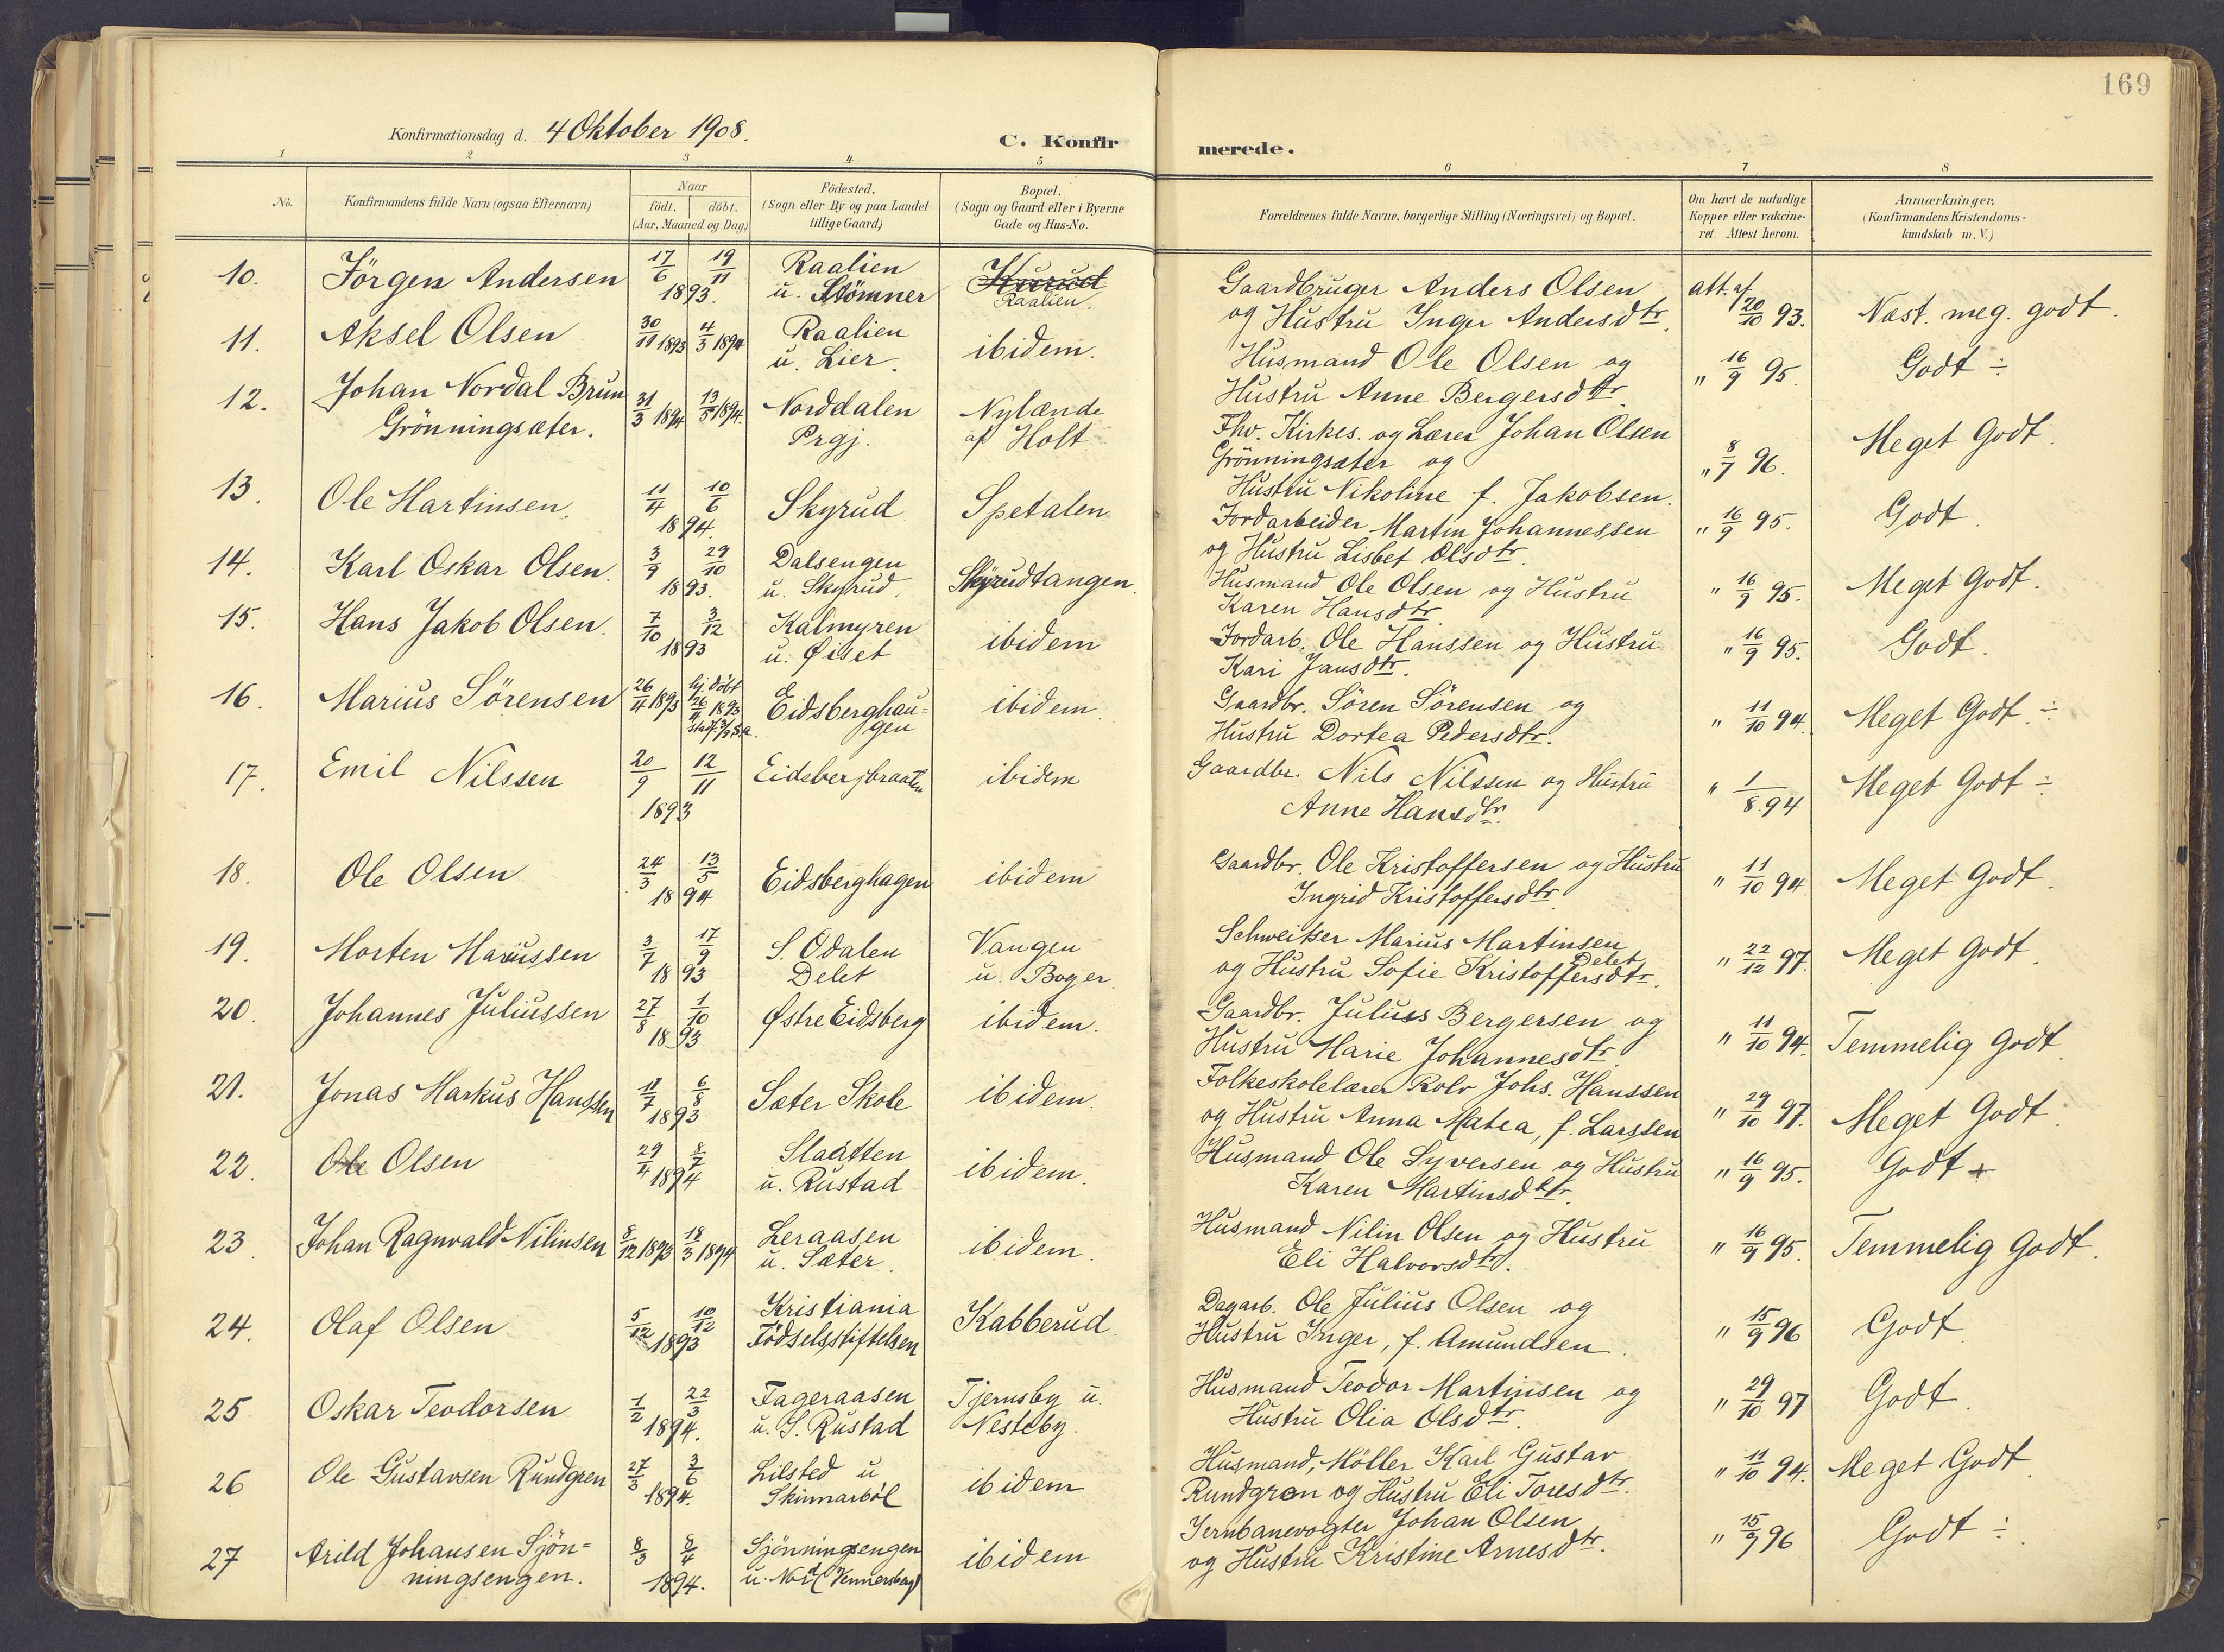 169
Konfirmationsdag d. 4 Oktober 1908.
C. Konfirmerede.
1 2 3 4 5 6 7 8
No.
Konfirmandens fulde Navn (ogsaa Efternavn)
Naar
födt. döbt.
(Aar, Maaned og Dag)
Födested.
(Sogn eller By og paa Landet
tillige Gaard)
Bopæl.
(Sogn og Gaard eller i Byerne
Gade og Hus-No.
Forældrenes fulde Navne, borgerlige Stilling (Næringsvei) og Bopæl.
Om havt de naturlige
Kopper eller vakcine-
ret. Attest herom.
Anmærkninger.
(Konfirmandens Kristendoms-
kundskab m. V.)
10. Jörgen Andersen 17/6 19/11 1893. Raalien
u. Stömner
Raalien.
Gaardbruger Anders Olsen
og Hustru Inger Andersdtr.
att. af 20/10 93. Næst. meg. godt.
11. Aksel Olsen 30/11 1893 4/3 1894 Raalien
u. Lier.
ibidem.
Husmand Ole Olsen og
Hustru Anne Bergersdtr.
" 16/9 95. Godt ÷
12. Johan Nordal Brun
Grönningsæter.
31/3 1894 13/5 1894. Norddalen
Prgj.
Nylænde
af Holt
Fhv. Kirkes. og Lærer Johan Olsen
Grönningsæter og
Hustru Nikoline f. Jakobsen.
" 8/7 96. Meget Godt.
13. Ole Martinsen. 11/4 10/6 1894. Skyrud Spetalen
Jordarbeider Martin Johannessen
og Hustru Lisbet Olsdtr.
" 16/9 95. Godt.
14. Karl Oskar Olsen. 3/9 29/10 1893. Dalsengen
u. Skyrud.
Skyrudtangen.
Husmand Ole Olsen og Hustru
Karen Hansdtr.
" 16/9 95. Meget Godt.
15. Hans Jakob Olsen. 7/10 3/12 1893 Kalmyren
u. Øiset
ibidem
Jordarb. Ole Hanssen og Hustru
Kari Jansdtr.
" 16/9 95. Godt.
16. Marius Sörensen 26/4 1893 hj. döbt
26/4 1893
Eidsberghau=
gen
ibidem.
Gaardbr. Sören Sörensen og
Hustru Dortea Pedersdtr.
" 11/10 94. Meget Godt. ÷
17. Emil Nilssen 20/9 12/11 1893 Eidsbergbraaten ibidem
Gaardbr. Nils Nilssen og Hustru
Anne Hansdtr.
" 1/8 94 Meget Godt ÷
18. Ole Olsen 24/3 13/5 1894 Eidsberghagen ibidem
Gaardbr. Ole Kristoffersen og Hustru
Ingrid Kristoffersdtr.
" 11/10 94. Meget Godt.
19. Morten Mariussen 3/7 17/9 1893 S. Odalen
Delet
Vangen
u. Boger.
Schweitser Marius Martinsen
Delet
og Hustru Sofie Kristoffersdtr.
" 22/12 97. Meget Godt.
20. Johannes Juliussen 27/8 1/10 1893 Østre Eidsberg ibidem.
Gaardbr. Julius Bergersen og
Hustru Marie Johannesdtr.
" 11/10 94. Temmelig Godt.
21. Jonas Markus Hanssen 11/7 6/8 1893 Sæter Skole ibidem.
Folkeskolelærer Rolv Johs. Hanssen
og Hustru Anna Matea, f. Larssen
" 29/10 97. Meget Godt.
22. Ole Olsen 29/4 8/7 1894 Slaatten
u. Rustad
ibidem.
Husmand Ole Syversen og Hustru
Karen Martinsdtr.
" 16/9 95. Godt +
23. Johan Ragnvald Nilinsen 8/12 1893 18/3 1894 Leraasen
u. Sæter.
ibidem.
Husmand Nilin Olsen og Hustru
Eli Halvorsdtr.
" 16/9 95. Temmelig Godt.
24. Olaf Olsen 5/12 10/12 1893 Kristiania
Födselsstiftelsen
Kabberud.
Dagarb. Ole Julius Olsen og
Hustru Inger, f. Amundsen.
" 15/9 96 Godt
25 Oskar Teodorsen 1/2 22/3 1894. Fageraasen
u. S. Rustad
Tjernsby u.
Nesteby.
Husmand Teodor Martinsen og
Hustru Olia Olsdtr.
" 29/10 97 Godt.
26 Ole Gustavsen Rundgren 27/3 3/6 1894. Lilsted u
Skinnarböl
ibidem
Husmand, Möller Karl Gustav
Rundgren og Hustru Eli Toresdtr.
" 11/10 94. Meget Godt.
27 Arild Johansen Sjön=
ningsengen.
8/3 8/4 1894. Sjönningsengen
u. Nord Vennersberg
ibidem
Jernbanevogter Johan Olsen
og Hustru Kristine Arnesdtr.
" 15/9 96 Godt ÷